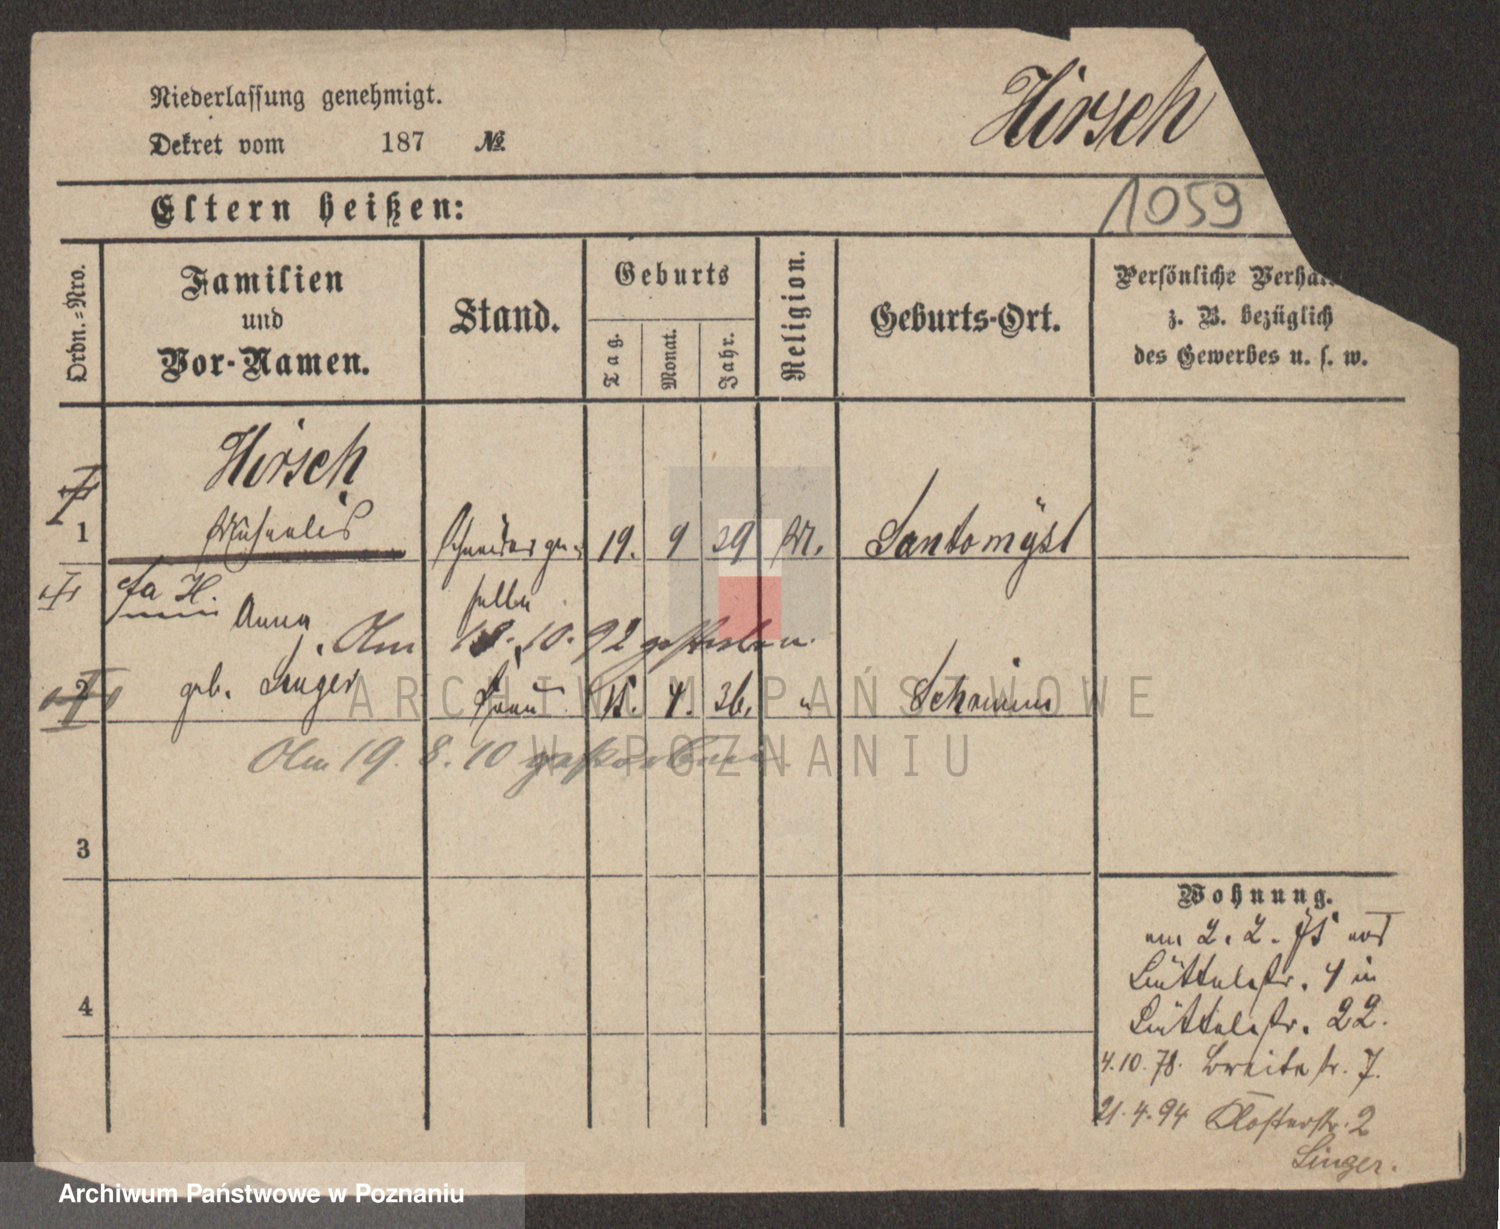 Niederlassung genehmigt.
Dekret vom 187 №
Hirsch
1059
Eltern heißen:
Ordn.=Nro.
Familien
und
Vor-Namen.
Stand.
Geburts
Tag.
Monat.
Jahr.
Religion.
Geburts-Ort.
Persönliche Verhäl
z. B. bezüglich
des Gewerbes u. s. w.
Hirsch
1 Michaelis Schneiderge= 19. 9 29 Santomyśl
H. Anna selle
Am 18.10.92 gestorben.
2 geb. Singer Frau 15. 4. 36. " Schrimm
Am 19.8.10 gestorben.
3
4
Wohnung.
am 2.2.75 von
Büttelstr. 4 in
Büttelstr. 22.
4.10.78. Breitestr. 7.
21.4.94 Klosterstr. 2
Singer.
ARCHIWUM PAŃSTWOWE
W POZNANIU
Archiwum Państwowe w Poznaniu